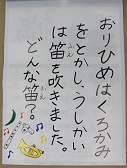 おりひめはくろかみ
をとかし、うしかい
は笛を吹きました。
どんな笛？